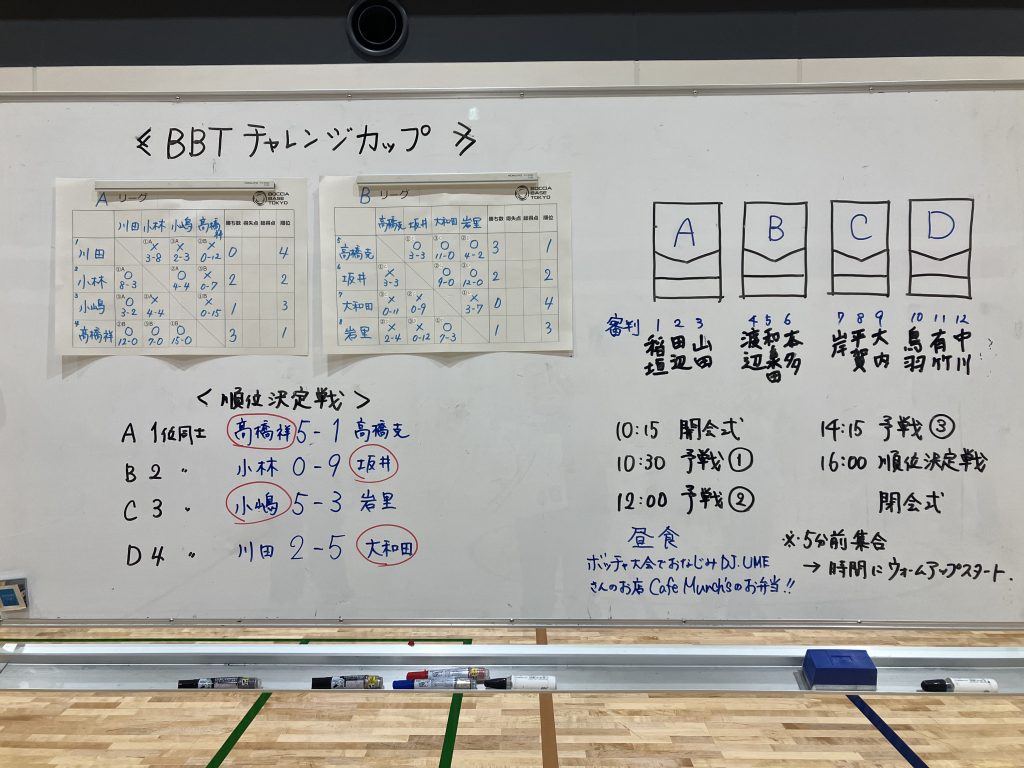 ≪ BBT チャレンジカップ ≫
A リーグ
BOCCIA BASE TOKYO
川田 小林 小嶋 高橋祥 勝ち数 得失点 総得点 順位
1 川田 ①A × 3-8 ②A × 2-3 ③B × 0-12 0 4
2 小林 ①A ○ 8-3 ③A ○ 4-4 ②B × 0-7 2 2
3 小嶋 ②A ○ 3-2 ③A × 4-4 ①B × 0-15 1 3
4 高橋祥 ③B ○ 12-0 ②B ○ 7-0 ①B ○ 15-0 3 1
B リーグ
BOCCIA BASE TOKYO
高橋克 坂井 大和田 岩里 勝ち数 得失点 総得点 順位
5 高橋克 ○ 3-3 ○ 11-0 ○ 4-2 3 1
6 坂井 × 3-3 ○ 9-0 ○ 12-0 2 2
7 大和田 × 0-11 × 0-9 × 3-7 0 4
8 岩里 × 2-4 × 0-12 ○ 7-3 1 3
＜順位決定戦＞
A 1位同士 高橋祥 5-1 高橋克
B 2 〃 小林 0-9 坂井
C 3 〃 小嶋 5-3 岩里
D 4 〃 川田 2-5 大和田
A B C D
審判 1 2 3 4 5 6 7 8 9 10 11 12
稲垣 田辺 山田 渡辺 和泉田 本多 岸 平賀 大内 鳥羽 有竹 中川
10:15 開会式
10:30 予戦①
12:00 予戦②
昼食
ボッチャ大会でおなじみDJ.UME
さんのお店 Cafe Munch'sのお弁当!!
14:15 予戦③
16:00 順位決定戦
閉会式
※5分前集合
→時間にウォームアップスタート.